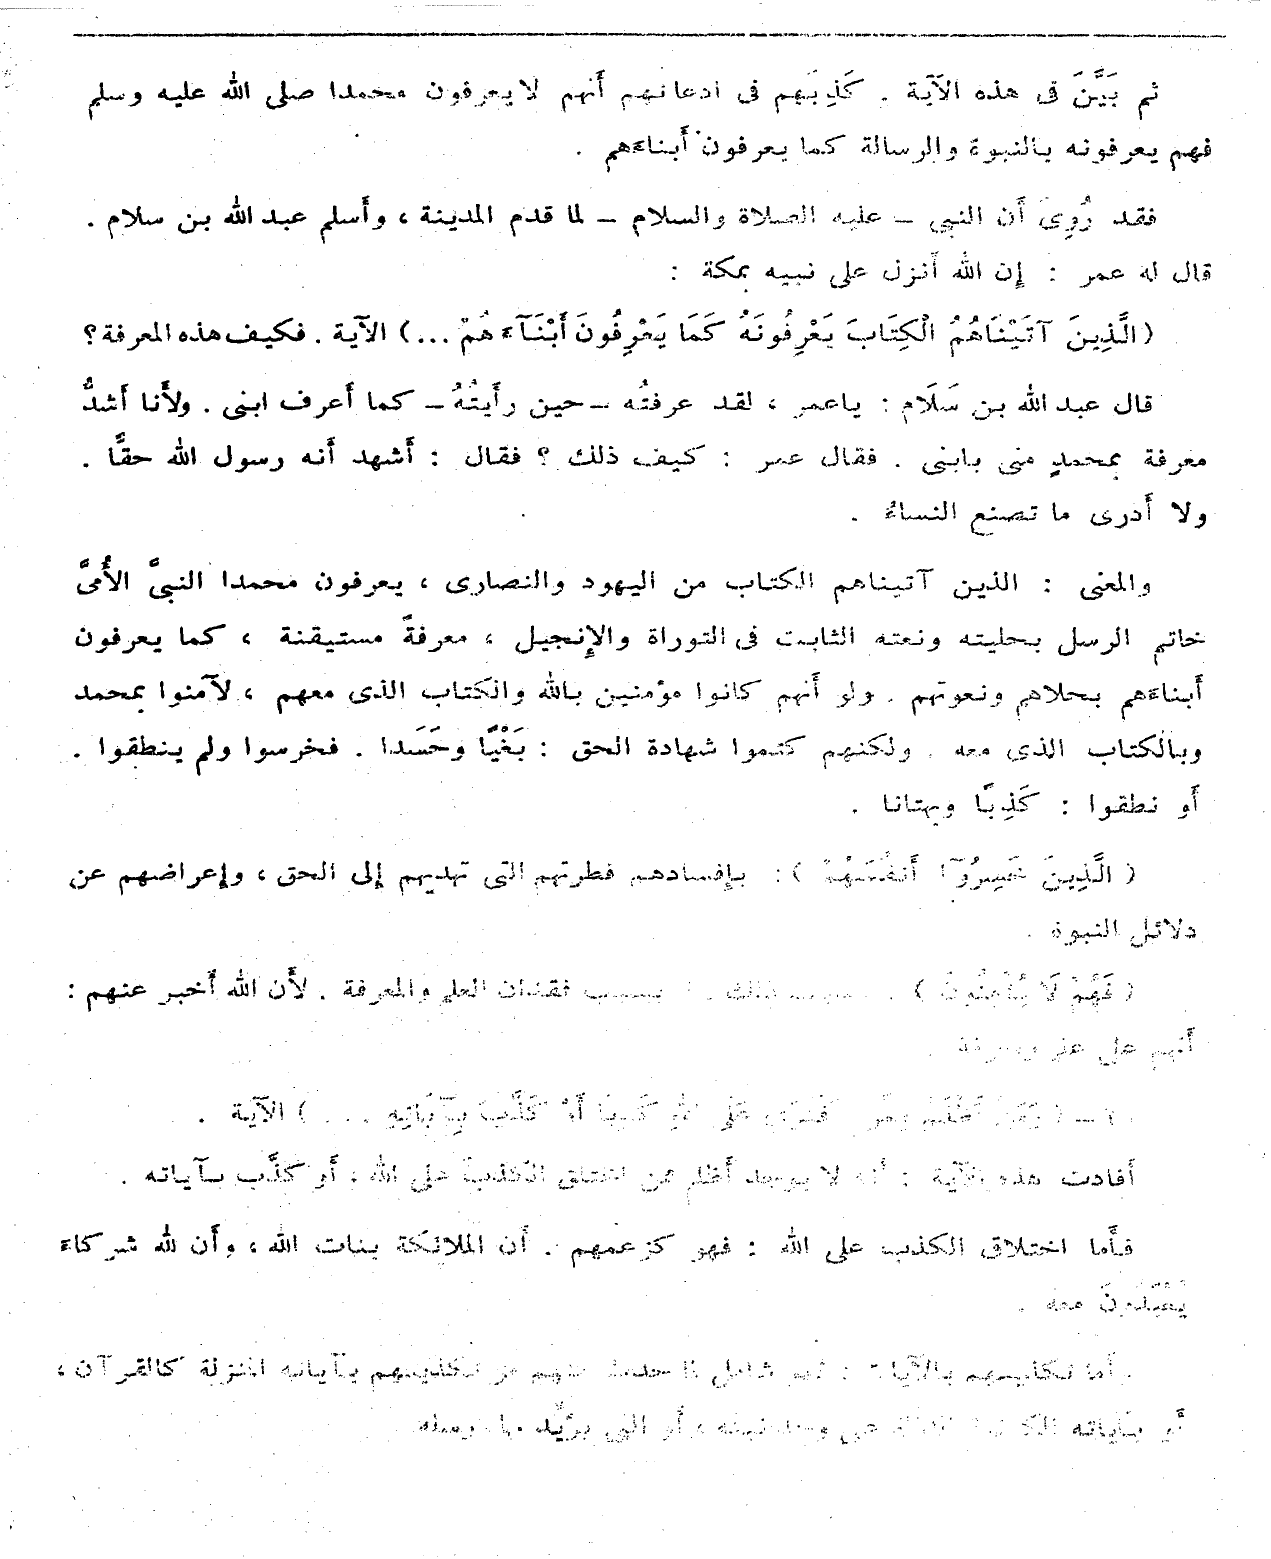 ثم بَيَّنَ في هذه الآية . كَذِبَهم في ادعائهم أَنهم لا يعرفون محمدا صلى الله عليه وسلم
فهم يعرفونه بالنبوة والرسالة كما يعرفون أَبناءَهم .
فقد رُوِىَ أَن النبي – عليه الصلاة والسلام – لما قدم المدينة ، وأَسلم عبد الله بن سلام .
قال له عمر : إن الله أَنزل على نبيه بمكة :
( الَّذِينَ آتَيْنَاهُمُ الْكِتَابَ يَعْرِفُونَهُ كَمَا يَعْرِفُونَ أَبْنَآءَهُمْ ... ) الآية . فكيف هذه المعرفة ؟
قال عبد الله بن سَلَام : ياعمر ، لقد عرفتُه – حين رأَيتُهُ – كما أَعرف ابنى . ولأَنا أَشدُّ
معرفة بمحمدٍ منى بابنى . فقال عمر : كيف ذلك ؟ فقال : أَشهد أَنه رسول الله حقًّا .
ولا أَدرى ما تصنع النساءُ .
والمعنى : الذين آتيناهم الكتاب من اليهود والنصارى ، يعرفون محمدا النبىَّ الأُمىَّ
خاتم الرسل بحليته ونعته الثابت فى التوراة والإِنجيل ، معرفةً مستيقنة ، كما يعرفون
أَبناءَهم بحلاهم ونعوتهم . ولو أَنهم كانوا مؤمنين بالله والكتاب الذى معهم ، لآمنوا بمحمد
وبالكتاب الذى معه . ولكنهم كتموا شهادة الحق : بَغْيًا وحَسَدا . فخرسوا ولم ينطقوا .
أَو نطقوا : كَذِبًا وبهتانا .
( الَّذِينَ خَسِرُوٓا أَنفُسَهُمْ ) : بإفسادهم فطرتهم التى تهديهم إلى الحق ، وإعراضهم عن
دلائل النبوة .
( فَهُمْ لَا يُؤْمِنُونَ ) بسبب فقدان العلم والمعرفة . لأَن الله أَخبر عنهم :
أَنهم على علم ومعرفة .
( وَمَنْ أَظْلَمُ مِمَّنِ افْتَرَى عَلَى اللهِ كَذِبًا أَوْ كَذَّبَ بِآيَاتِهِ ... ) الآية .
أَفادت هذه الآية : أَنه لا يوجد أَظلم ممن اختلق الكذب على الله ، أَو كذَّب بآياته .
فأَما اختلاق الكذب على الله : فهو كزعمهم . أَن الملائكة بنات الله ، وأَن لله شركاءَ
يُعْبَدُونَ معه .
وأَما تكذيبهم بالآيات : فهو شامل لما حدث منهم من تكذيبهم بآياته المنزلة كالقرآن ،
أَو بآياته على أَو التى يؤيِّد بها رسله